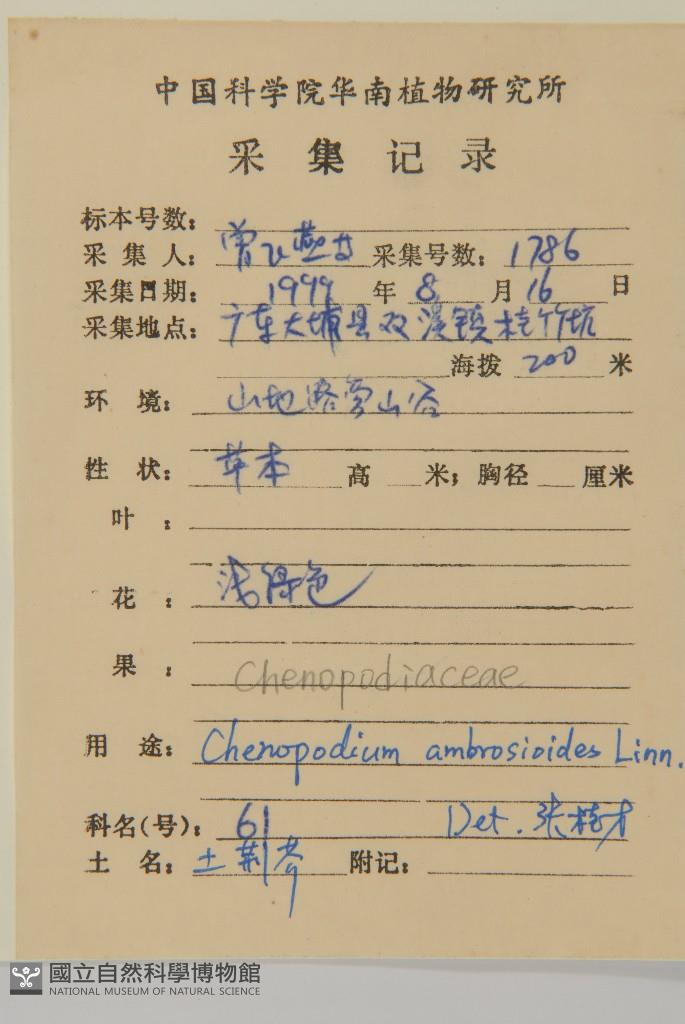 中国科学院华南植物研究所
采集记录
标本号数：
采集人：曾飞燕等 采集号数：1786
采集日期：1999年8月16日
采集地点：广东大埔县双溪镇桂竹坑
海拨 200 米
环境：山地路旁山谷
性状：草本 高 米；胸径 厘米
叶：
花：浅绿色
果：
Chenopodiaceae
用途：Chenopodium ambrosioides Linn.
科名(号)：61 Det. 张桂才
土名：土荆芥 附记：
國立自然科學博物館
NATIONAL MUSEUM OF NATURAL SCIENCE